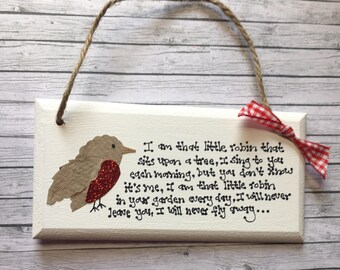 I am that little robin that
sits upon a tree, I sing to you
each morning, but you don't know
it's me, I am that little robin
in your garden every day, I will never
leave you, I will never fly away...